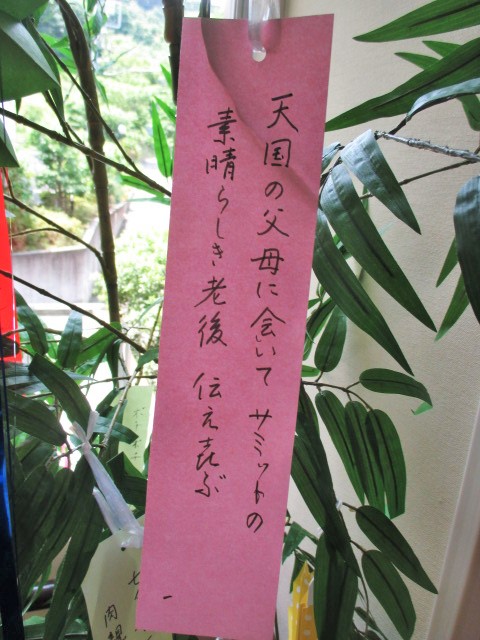 天国の父母に会いて サミットの
素晴らしき老後 伝え喜ぶ